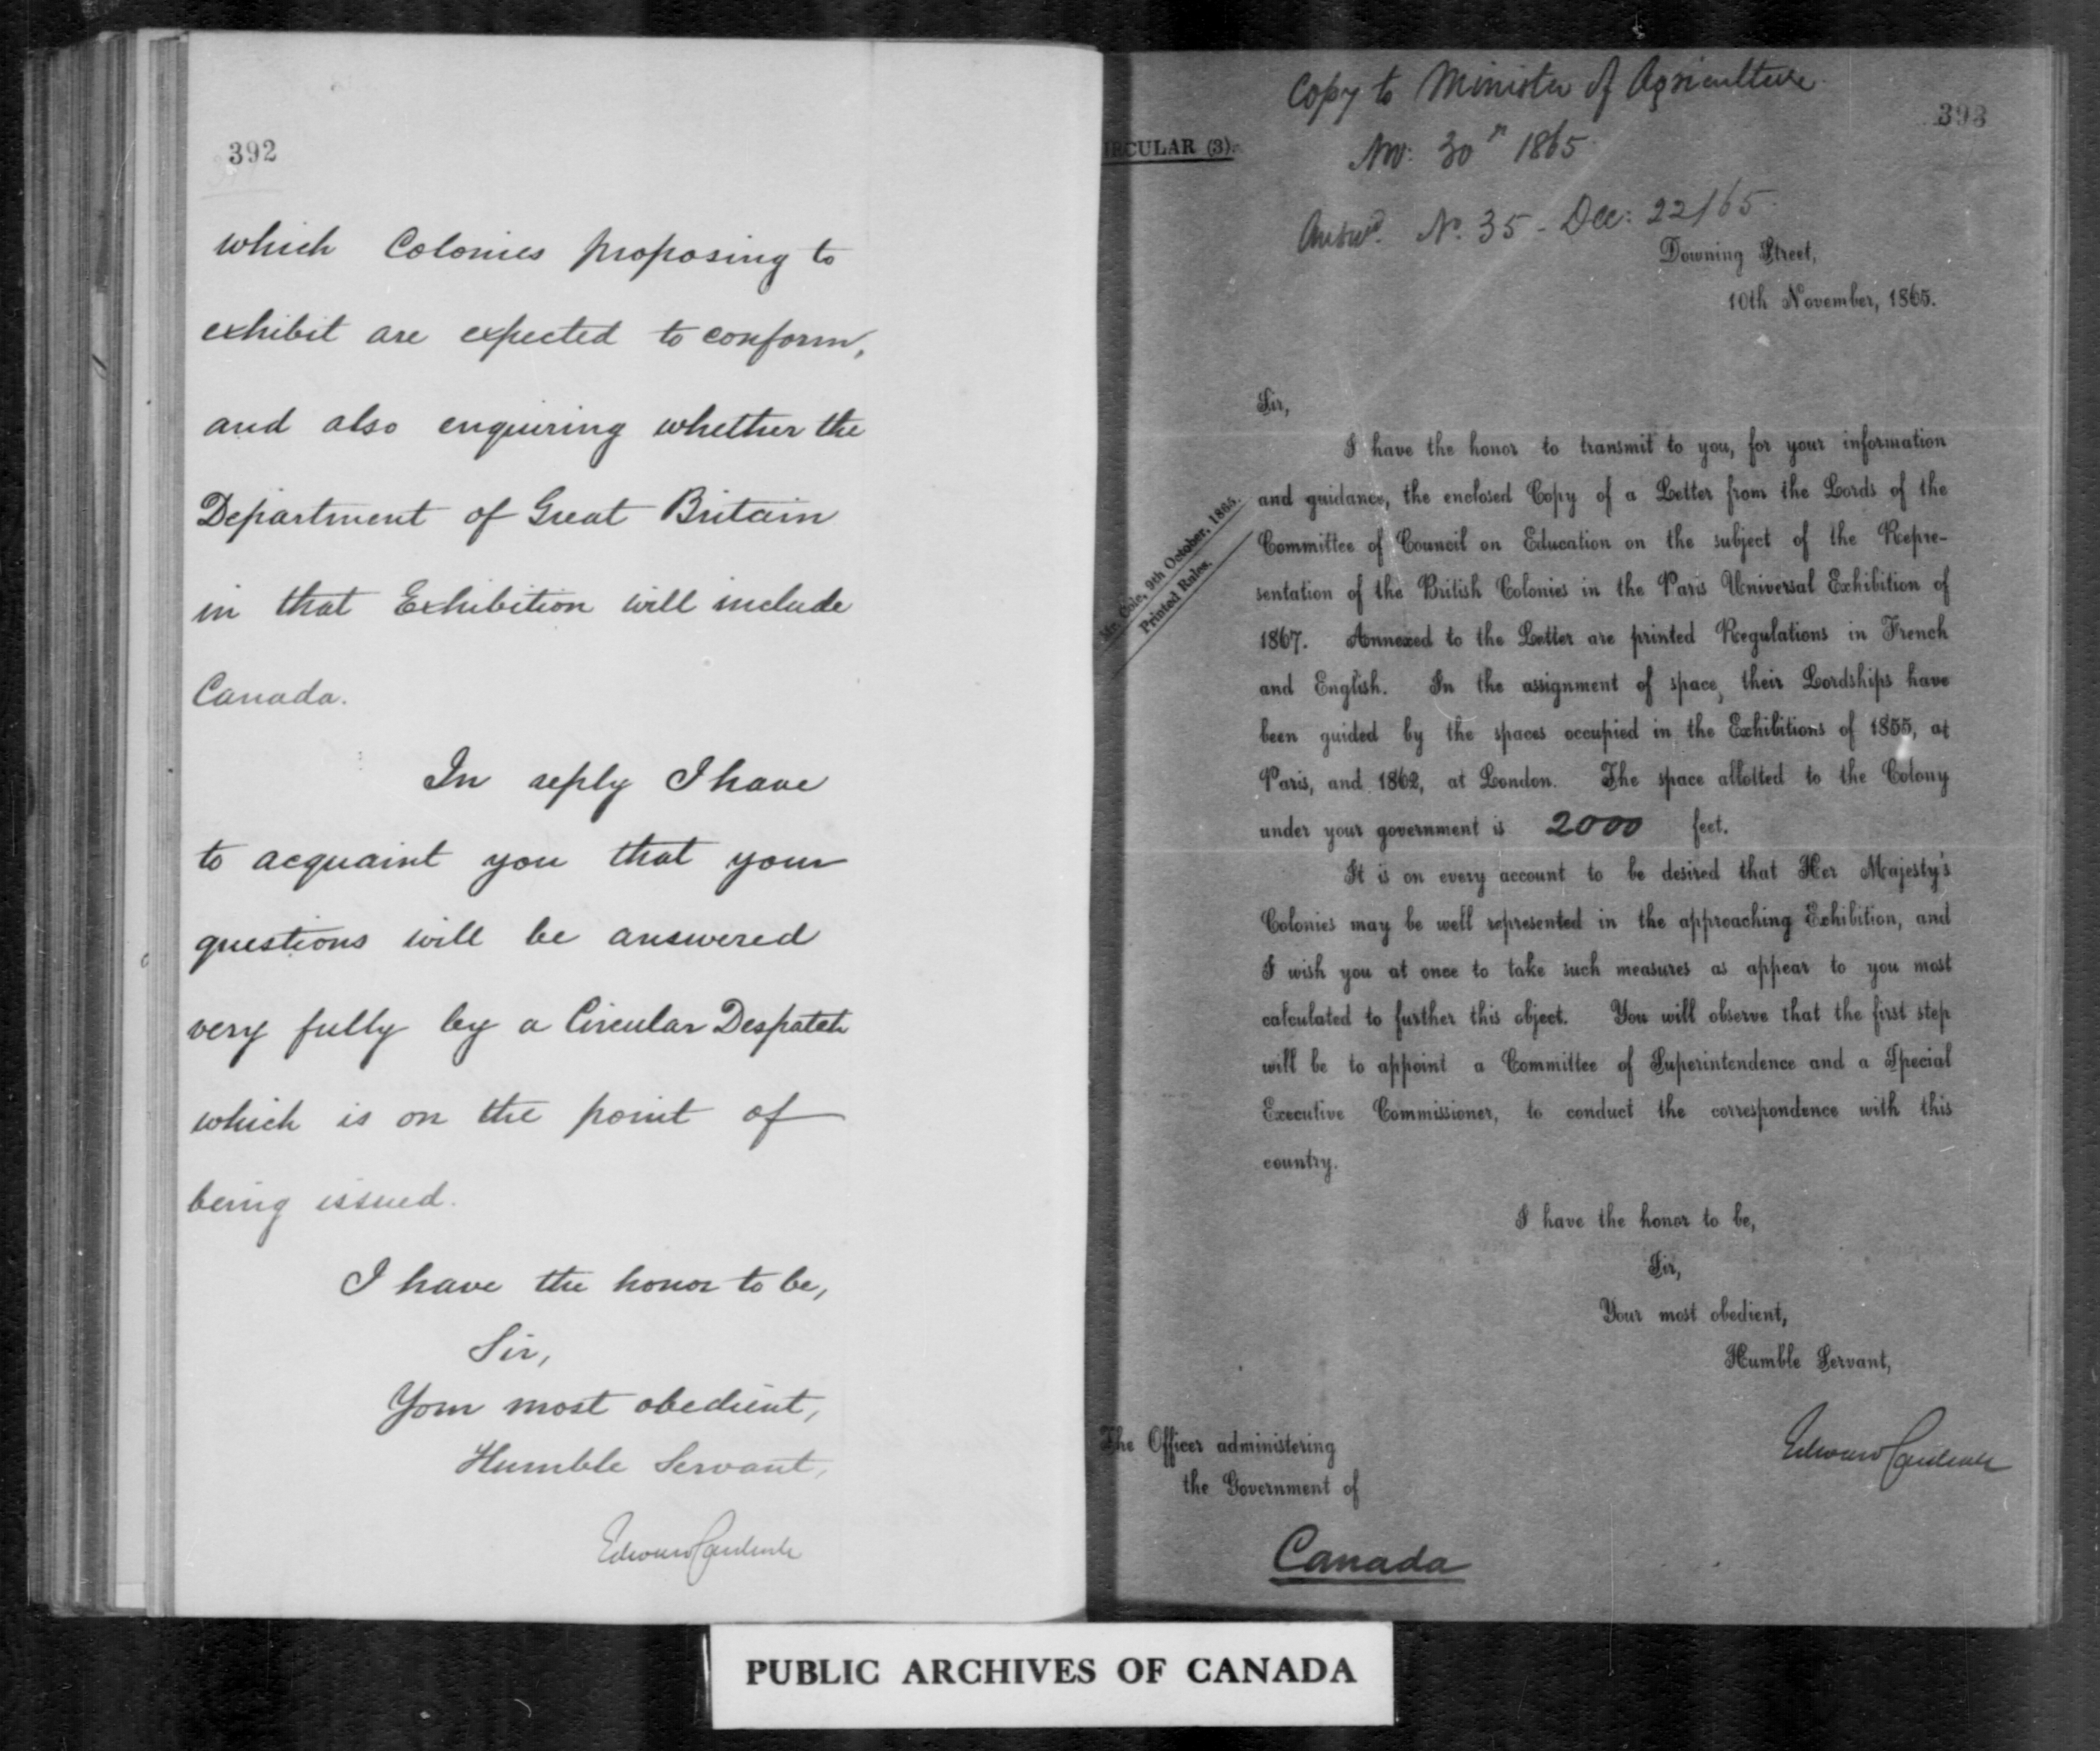 392
which Colonies proposing to
exhibit are expected to conform,
and also enquiring whether the
Department of Great Britain
in that Exhibition will include
Canada.
In reply I have
to acquaint you that your
questions will be answered
very fully by a Circular Despatch
which is on the point of
being issued.
I have the honor to be,
Sir,
Your most obedient,
Humble Servant,
Edward Cardwell
Copy to Minister of Agriculture
393
CIRCULAR (3).
Nov: 30th 1865
Answd. No. 35 - Dec: 22/65
Downing Street,
10th November, 1865.
Sir,
I have the honor to transmit to you, for your information
and guidance, the enclosed Copy of a Letter from the Lords of the
Mr. Cole, 9th October, 1865.
Printed Rules.
Committee of Council on Education on the subject of the Repre-
sentation of the British Colonies in the Paris Universal Exhibition of
1867. Annexed to the Letter are printed Regulations in French
and English. In the assignment of space, their Lordships have
been guided by the spaces occupied in the Exhibitions of 1855, at
Paris, and 1862, at London. The space allotted to the Colony
under your government is 2000 feet.
It is on every account to be desired that Her Majesty's
Colonies may be well represented in the approaching Exhibition, and
I wish you at once to take such measures as appear to you most
calculated to further this object. You will observe that the first step
will be to appoint a Committee of Superintendence and a Special
Executive Commissioner, to conduct the correspondence with this
country.
I have the honor to be,
Sir,
Your most obedient,
Humble Servant,
Edward Cardwell
The Officer administering
the Government of
Canada
PUBLIC ARCHIVES OF CANADA